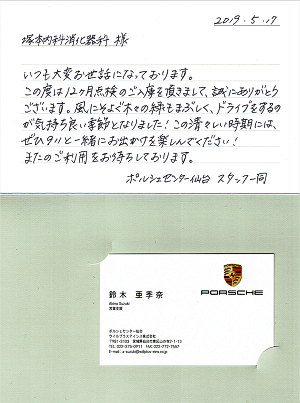 2019.5.17
塚本内科消化器科 様
いつも大変お世話になっております。
この度は12ヶ月点検のご入庫を頂きまして、誠にありがとう
ございます。風にそよぐ木々の緑もまぶしく、ドライブをするの
が気持ち良い季節となりました！この清々しい時期には、
ぜひ911と一緒にお出かけを楽しんでください！
またのご利用をお待ちしております。
ポルシェセンター仙台 スタッフ一同
PORSCHE
鈴木 亜季奈
Akina Suzuki
営業支援
ポルシェセンター仙台